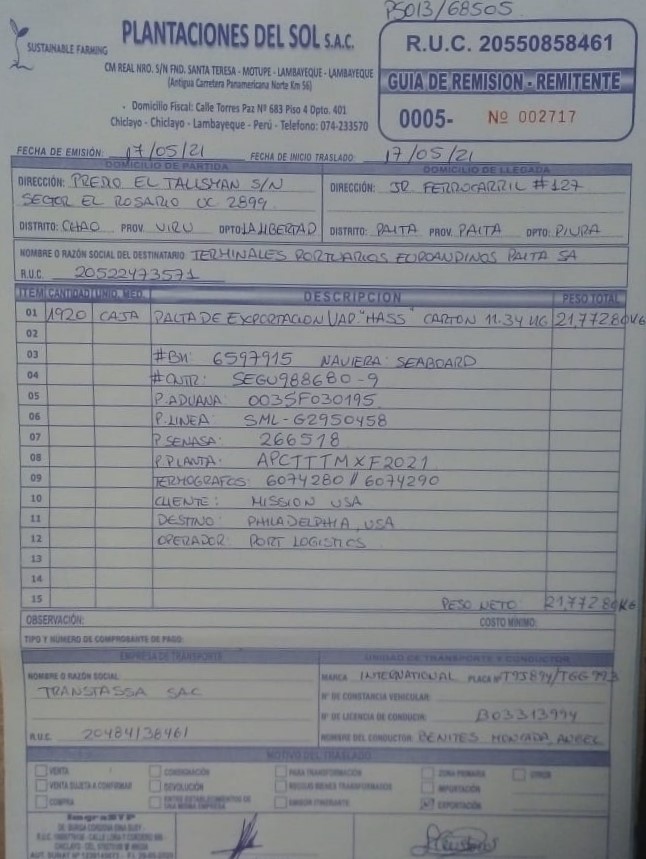 PS013/68505
SUSTAINABLE FARMING
PLANTACIONES DEL SOL S.A.C.
CM REAL NRO. S/N FND. SANTA TERESA - MOTUPE - LAMBAYEQUE - LAMBAYEQUE
(Antigua Carretera Panamericana Norte Km 56)
Domicilio Fiscal: Calle Torres Paz Nº 683 Piso 4 Dpto. 401
Chiclayo - Chiclayo - Lambayeque - Perú - Telefono: 074-233570
R.U.C. 20550858461
GUIA DE REMISION - REMITENTE
0005- Nº 002717
FECHA DE EMISIÓN: 17/05/21 FECHA DE INICIO TRASLADO: 17/05/21
DOMICILIO DE PARTIDA
DIRECCIÓN: PREDIO EL TALISMAN S/N
SECTOR EL ROSARIO UC 2899
DISTRITO: CHAO PROV. VIRU DPTO LA LIBERTAD
DOMICILIO DE LLEGADA
DIRECCIÓN: JR FERROCARRIL #127
DISTRITO: PAITA PROV. PAITA DPTO: PIURA
NOMBRE O RAZÓN SOCIAL DEL DESTINATARIO TERMINALES PORTUARIOS EUROANDINOS PAITA SA
R.U.C. 20522473571
ITEM CANTIDAD UNID. MED. DESCRIPCION PESO TOTAL
01 1920 CAJA PALTA DE EXPORTACION VAR. "HASS" CARTON 11.34 KG 21,772.80KG
02
03 #BK: 6597915 NAVIERA: SEABOARD
04 #CNTR: SEGU988680-9
05 P. ADUANA: 003SF030195
06 P. LINEA: SML-G2950458
07 P. SENASA: 266518
08 P. PLANTA: APCTTTMXF2021
09 TERMOGRAFOS: 6074280 // 6074290
10 CLIENTE: MISSION USA
11 DESTINO: PHILADELPHIA, USA
12 OPERADOR: PORT LOGISTICS
13
14
15 PESO NETO: 21,772.80KG
OBSERVACIÓN: COSTO MÍNIMO:
TIPO Y NÚMERO DE COMPROBANTE DE PAGO:
EMPRESA DE TRANSPORTE
NOMBRE O RAZÓN SOCIAL:
TRANSTASSA SAC
R.U.C. 20484138461
UNIDAD DE TRANSPORTE Y CONDUCTOR
MARCA INTERNATIONAL PLACA Nº
Nº DE CONSTANCIA VEHICULAR:
Nº DE LICENCIA DE CONDUCIR: B03313994
NOMBRE DEL CONDUCTOR: BENITES ANGEL
MOTIVO DEL TRASLADO
VENTA CONSIGNACIÓN PARA TRANSFORMACIÓN ZONA PRIMARIA OTROS
VENTA SUJETA A CONFIRMAR DEVOLUCIÓN RECOJO BIENES TRANSFORMADOS IMPORTACIÓN
COMPRA ENTRE ESTABLECIMIENTOS DE UNA MISMA EMPRESA EMISOR ITINERANTE EXPORTACIÓN